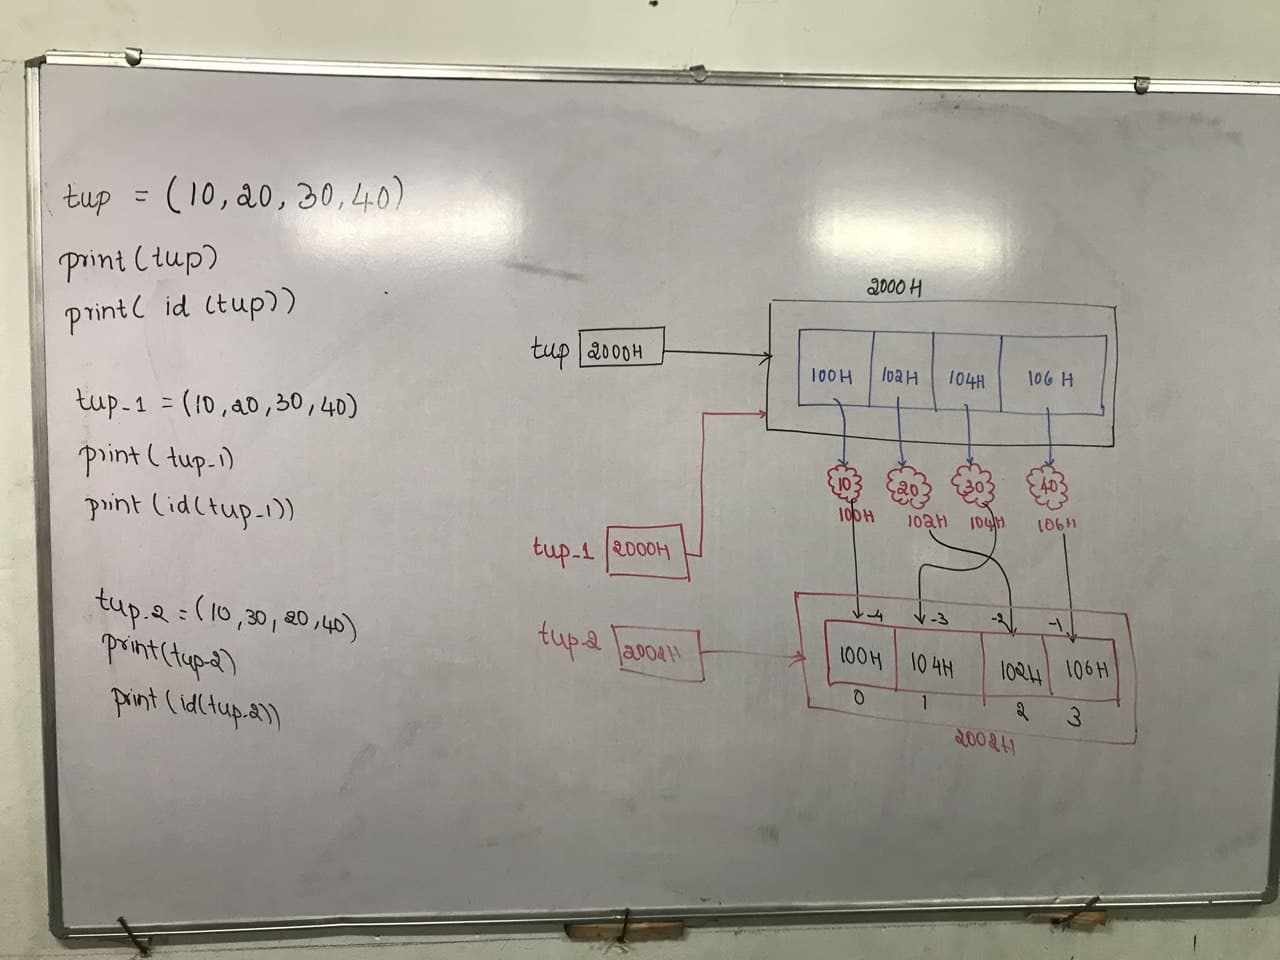 tup = (10, 20, 30, 40)
print(tup)
print( id (tup))
tup_1 = (10, 20, 30, 40)
print( tup_1)
print (id(tup_1))
tup_2 = (10, 30, 20, 40)
print(tup_2)
print (id(tup_2))
2000H
tup 2000H
100H 102H 104H 106H
10 20 30 40
100H 102H 104H 106H
tup_1 2000H
tup_2 2002H
-4 -3 -2 -1
100H 104H 102H 106H
0 1 2 3
2002H